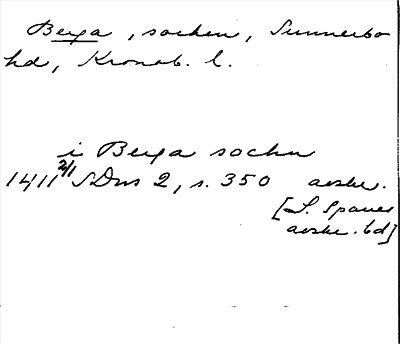 Berga, socken, Sunnerbo
hd, Kronob. l.
i Berga sockn
1411 2/1 SDns 2, s. 350 avskr.
[L. Sparres
avskr. bd]